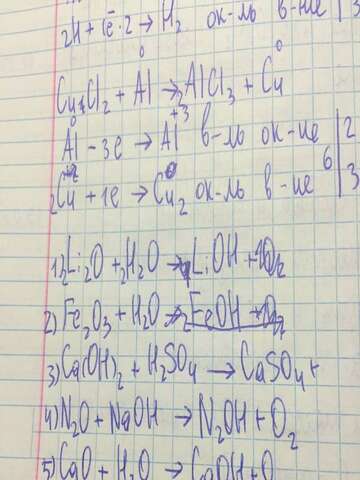 2H + 1ē·2 → H₂ ок-ль в-ние 3
Cu₂Cl₂ + Al⁰ → ₂AlCl₃ + Cu⁰
Al⁰ - 3e → Al⁺³ в-ль ок-ние 2
₂Cu + 1e → Cu₂⁰ ок-ль в-ие 6 3
1) ₂Li₂O + ₂H₂O → ₄LiOH + O₂
2) Fe₂O₃ + H₂O → ₂FeOH + O₂
3) Ca(OH)₂ + H₂SO₄ → CaSO₄ +
4) N₂O + NaOH → N₂OH + O₂
5) CaO + H₂O → CaOH + O